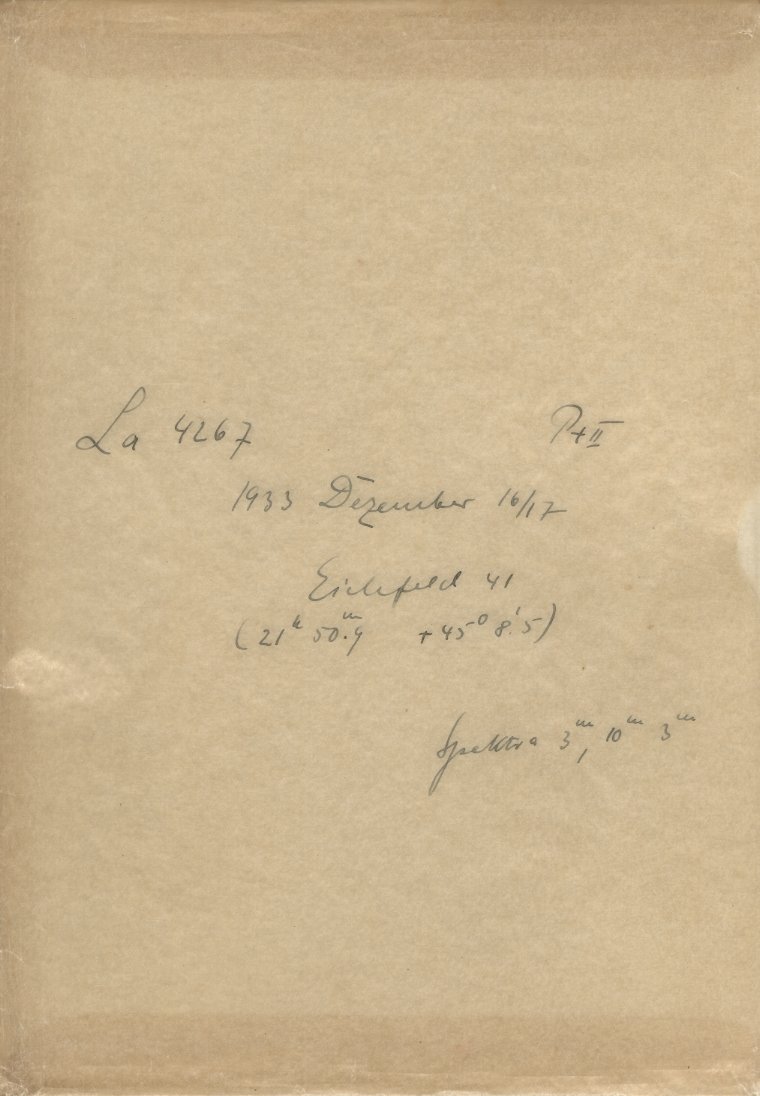 La 4267 P+II
1933 Dezember 16/17
Eichfeld 41
(21ʰ 50ᵐ.9 +45° 8'.5)
Spektra 3ᵐ, 10ᵐ 3ᵐ